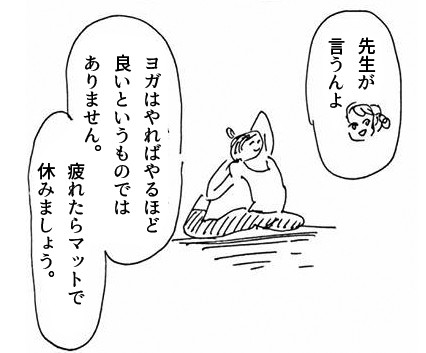 先生が
言うんよ
ヨガはやればやるほど
良いというものでは
ありません。
疲れたらマットで
休みましょう。